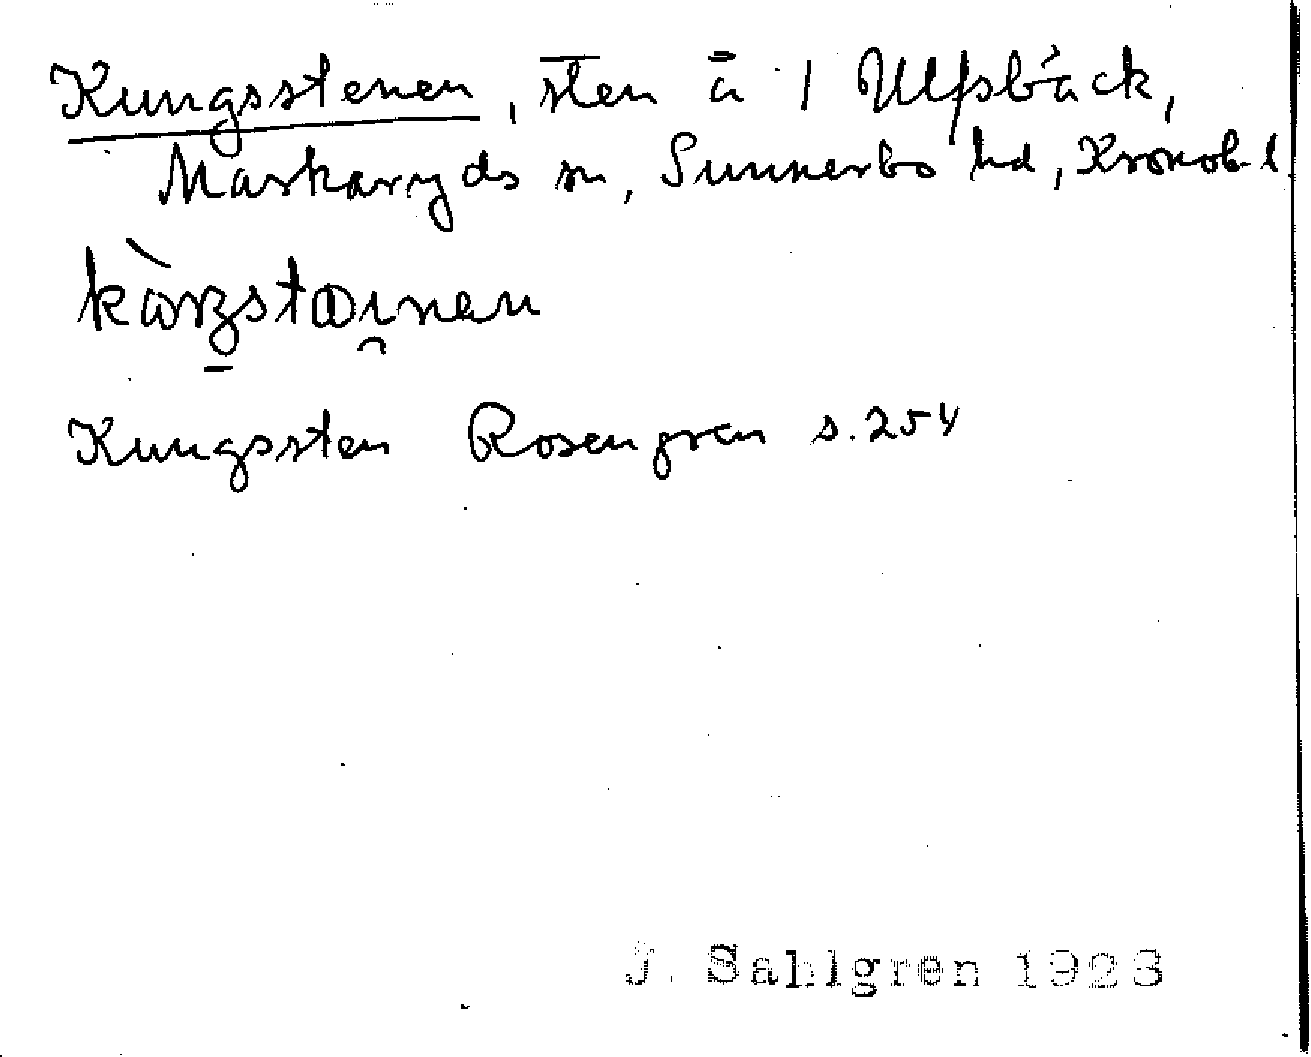 Kungsstenen, sten å 1 Ulfsbäck,
Markaryds sn, Sunnerbo hd, Kronob. l
Kungssten Rosengren s. 254
J. Sahlgren 1923